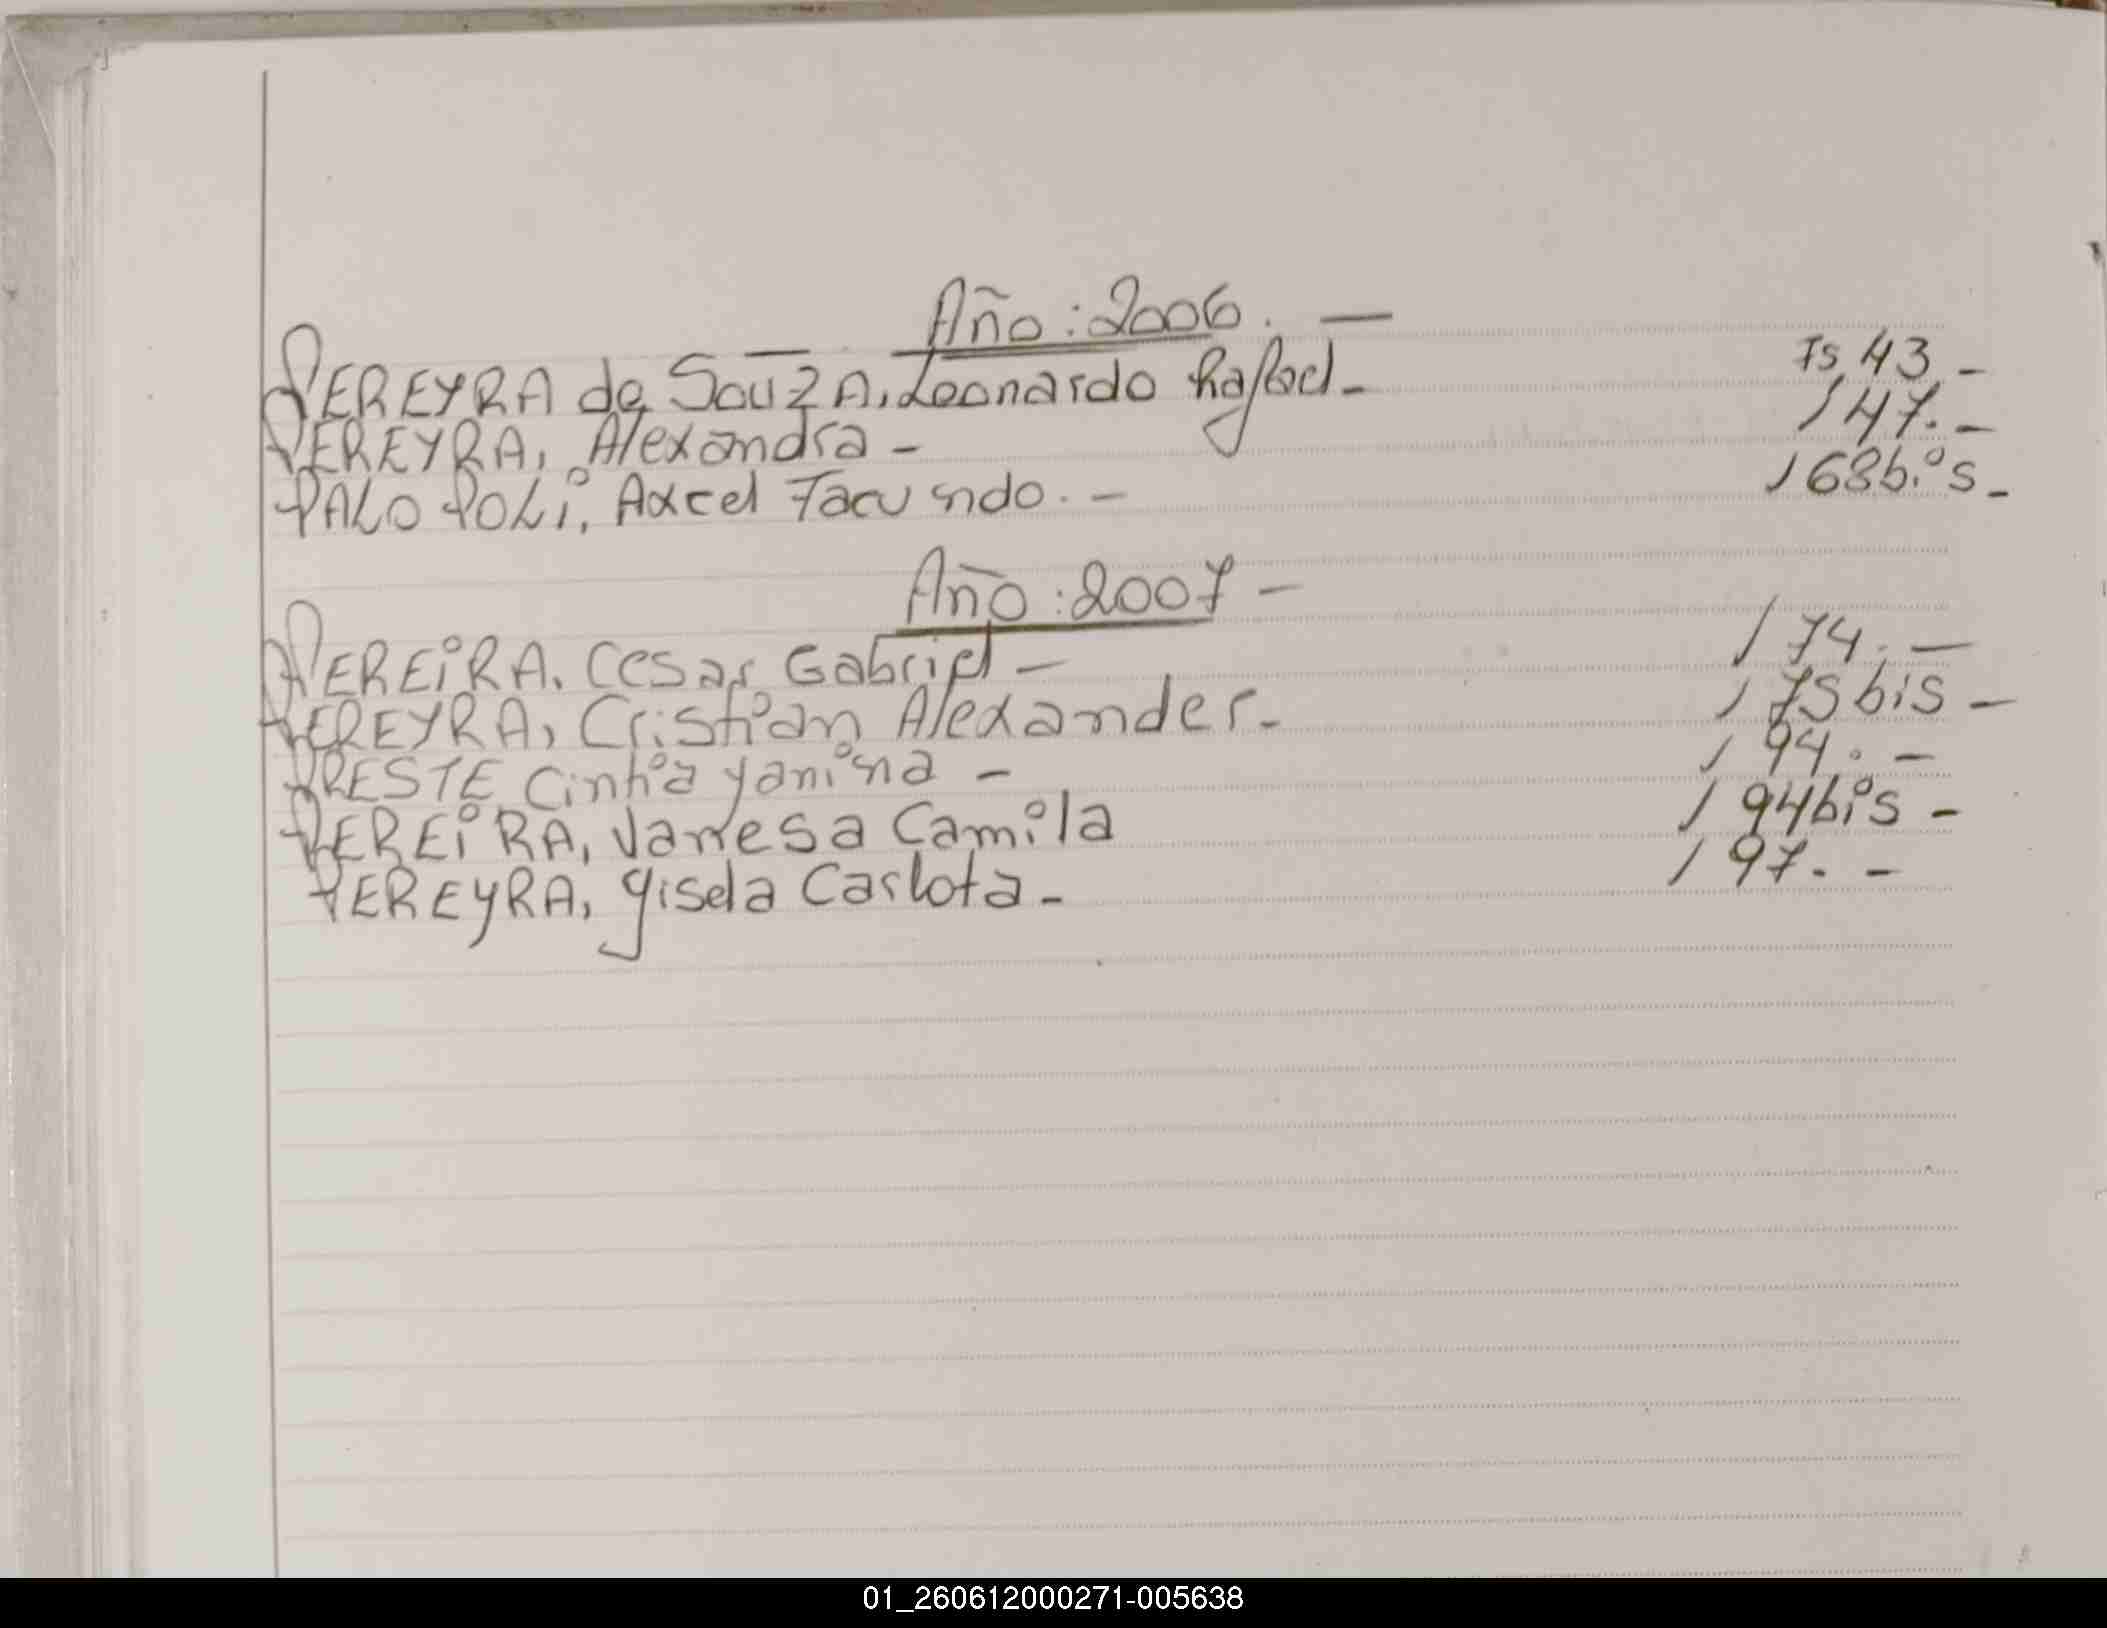 Año: 2006. —
PEREYRA de SouzA, Leonardo Rafael - Fs 43. -
PEREYRA, Alexandra - 147. -
PALO POLi, Axcel Facundo. - 168bis -
Año: 2007 -
PEREiRA, Cesar Gabriel - 174. —
PEREYRA, Cristian Alexander. - 175 bis -
PRESTE Cinthia yanina - 194. -
PEREiRA, Vanesa Camila 194bis -
PEREyRA, gisela Carlota - 197. -
01_260612000271-005638